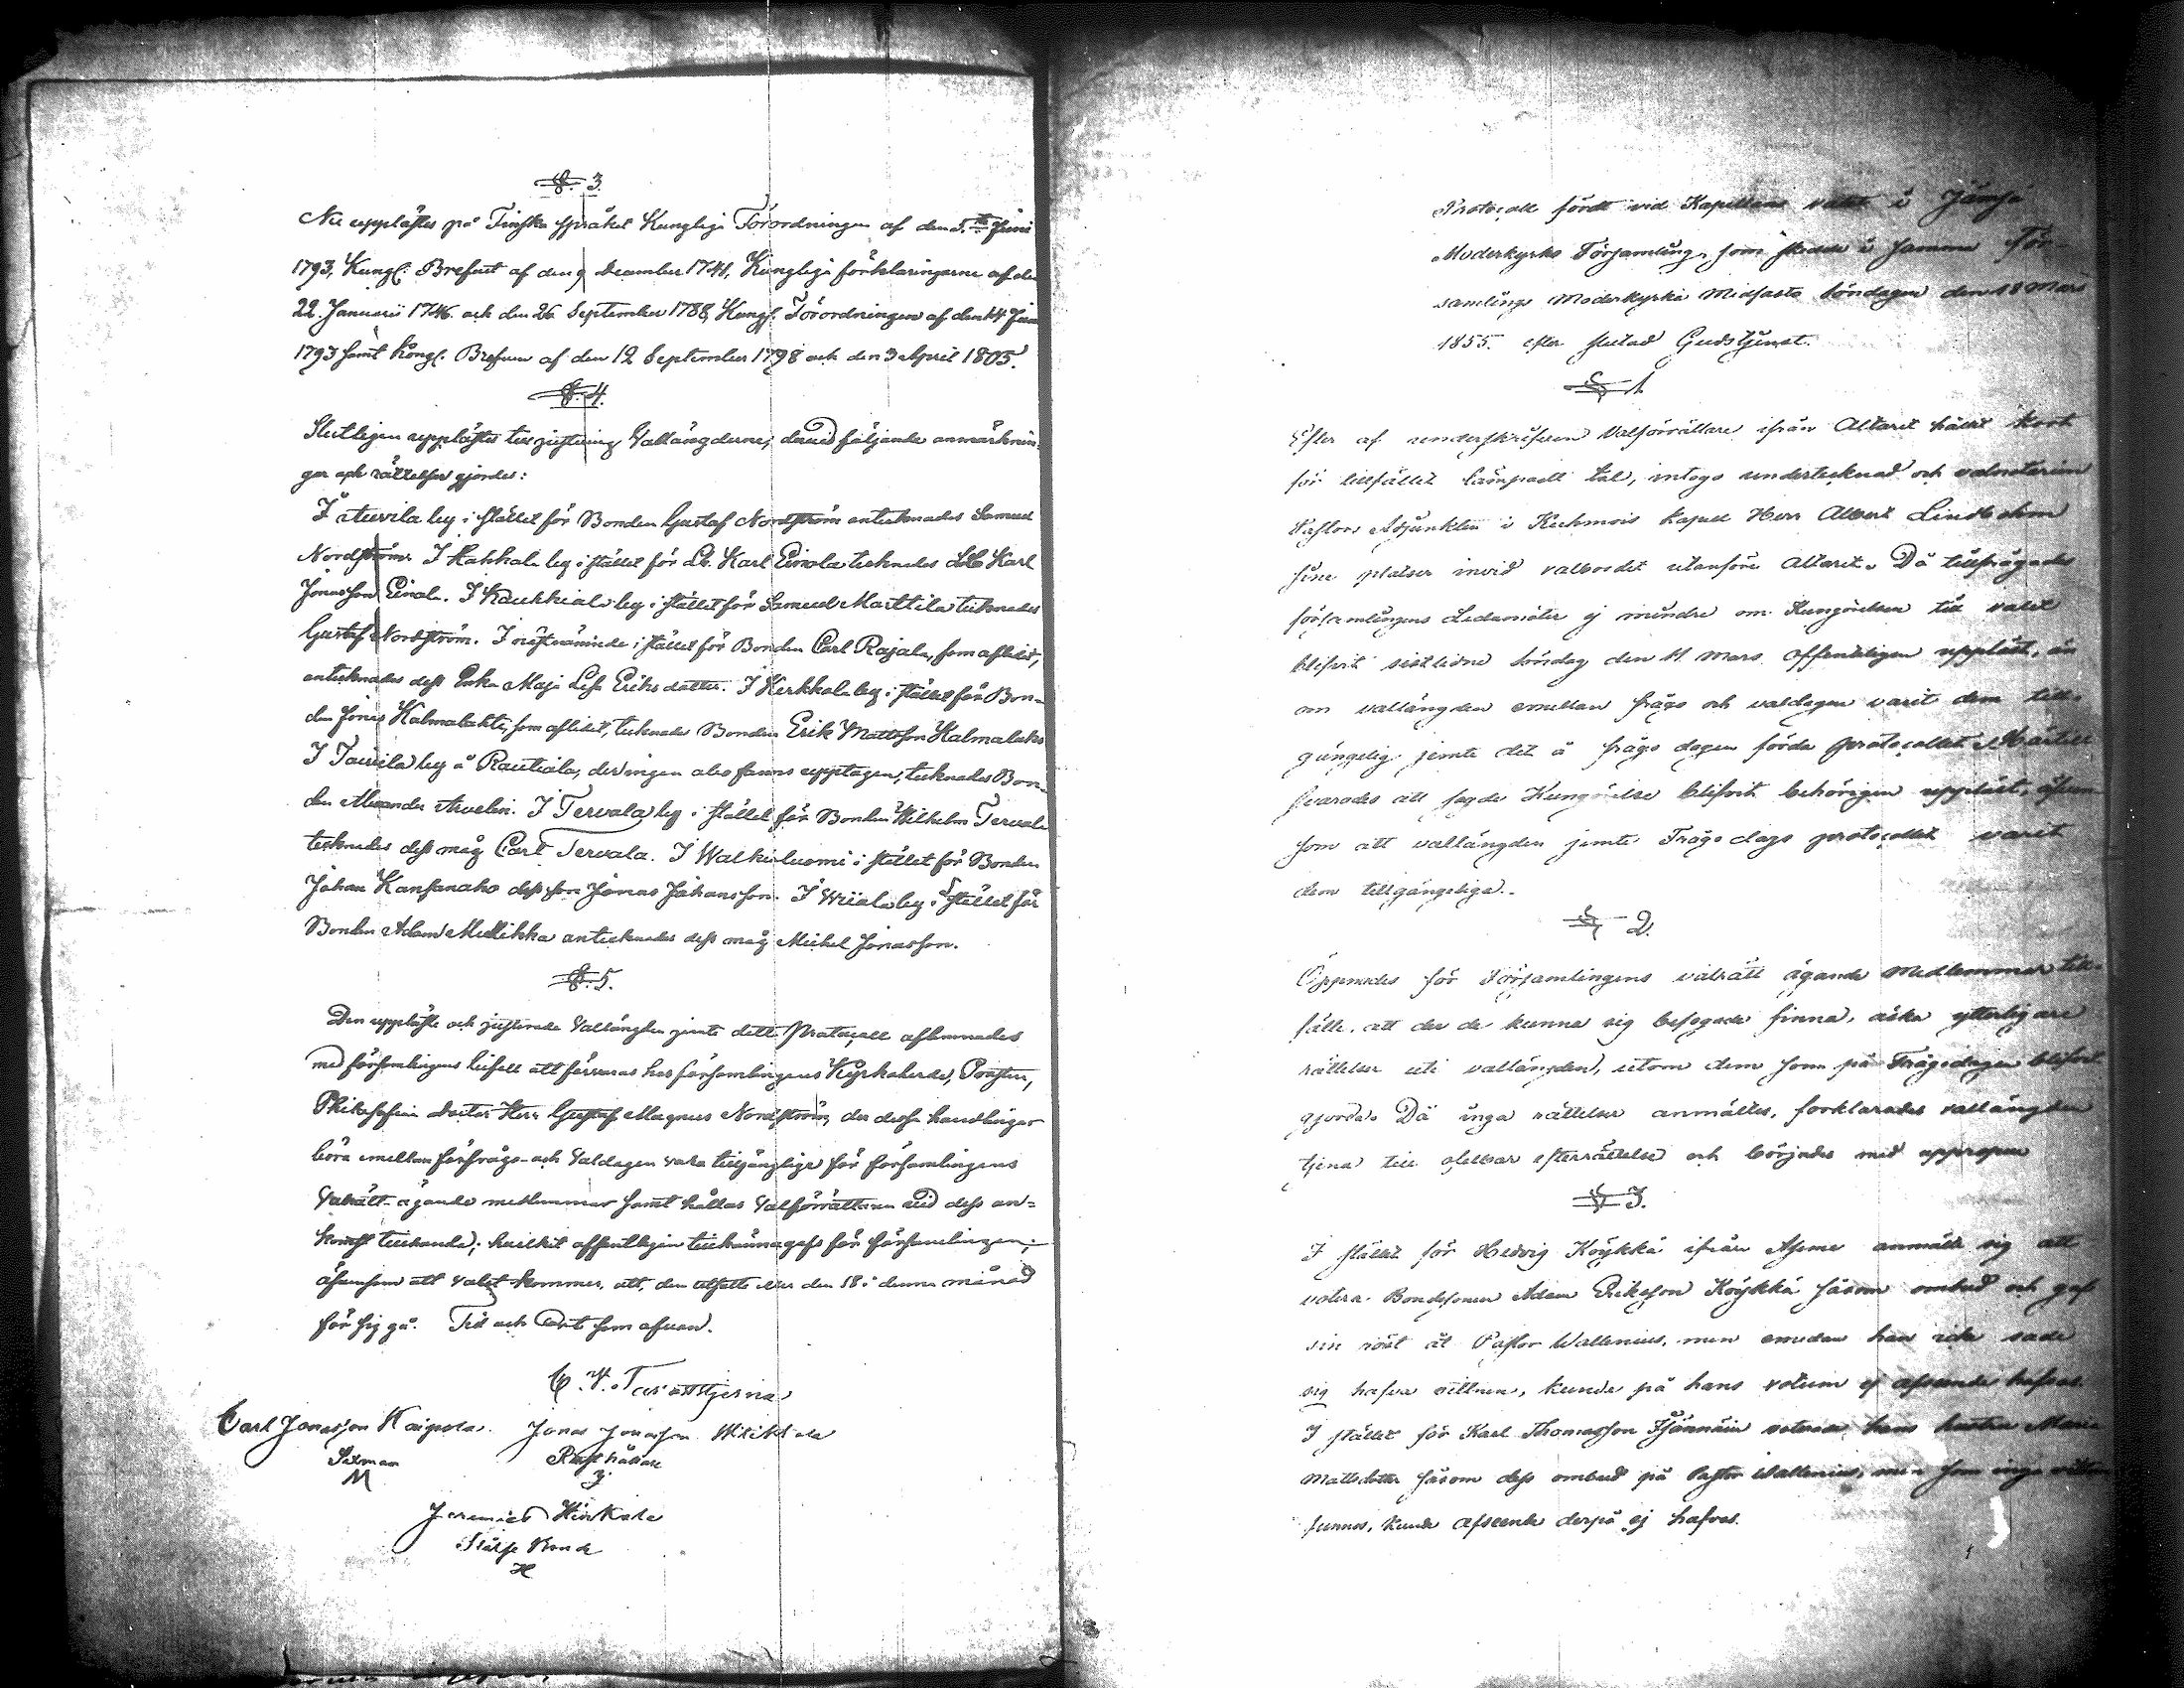 §. 3.
Nu upplästes på Finska språket Kungliga Förordningen af den 5.te Juni
1793, Kungl: Brefvet af den 9 December 1741, Kungliga förklaringarne af den
22. Januarii 1746 och den 26 September 1788, Kungl. Förordningen af den 14 Juni
1793 samt Kongl. Brefven af den 12 September 1798 och den 3 April 1805.
§. 4.
Slutligen upplästes till justering Vallängderne, dervid följande anmärknin-
gar och rättelser gjordes:
I by i stället för Bonden Gustaf Nordström antecknades Samuel
Nordström. I Hahkala by i stället för Karl Einola tecknades Karl
Jonasson Einola. I by i stället för Samuel Marttila tecknades
Gustaf Nordström. I nästnämnde i stället för Bonden Carl Rajala, som aflidit,
antecknades dess Enka Maja Lisa Eriksdotter. I Kerkkola by i stället för Bon-
den Jonas Kalmalahti, som aflidit, tecknades Bonden Erik Mattsson Kalmalahti
I by å Rautiala, der ingen alls fanns upptagen, tecknades Bon-
den Alexander I Tervala by i stället för Bonden Wilhelm Tervala
tecknades dess måg Carl Tervala. I i stället för Bonden
Johan Kansanaho dess son Jonas Johansson. I by i stället för
Bonden Adam antecknades dess måg Michel Jonasson.
§. 5.
Den uppläste och justerade Vallängden jemte detta Protocoll aflemnades
med församlingens bifall att förvaras hos församlingens Kyrkoherde, Prosten,
Philosophiæ Doctor Herr Gustaf Magnus Nordström, der dessa handlingar
böra emellan förfrågs- och Valdagen vara tillgänglige för församlingens
Valrätt-ägande medlemmar samt hållas Valförrättaren vid dess an-
komst tillhanda; hvilket offentligen tillkännagafs för församlingen;
äfvensom att valet kommer, att, den utsatte eller den 18 i denna månad
för sig gå. Tid och Ort som ofvan.
Carl Jonasson Kaipola. Jonas Jonasson
Sexman Rusthållare
Jeremias Hinkala
Skatte Bonde
Protocoll fördt vid Kapellans valet i Jämsä
Moderkyrko Församling, som skedde i samma För-
samlings Moderkyrka Midfasto Söndagen den 18 Mars
1855. efter slutad Gudstjenst.
§ 1.
Efter af underskrifven Valförrättare ifrån Altaret hållet kort
för tillfället lämpadt tal, intogo undertecknad och valnotarien
Pastors Adjunkten i Kuhmois kapell Herr Albert Lindholm
sine platser invid valbordet utanföre Altaret. Då tillfrågades
församlingens Ledamöter ej mindre om Kungörelsen till valet
blifvit sistlidne Söndag den 11 Mars offentligen uppläst, än
om vallängden emellan frågo och valdagen varit dem till-
gängelig jemte det å frågo dagen förda protocollet. Härtill
svarades att sagde Kungörelse blifvit behörigen uppläst, äfven-
som att vallängden jemte Frågo dags protocollet varit
dem tillgängeliga.
§ 2.
Öppnades för Församlingens valrätt ägande medlemmar till-
fälle, att der de kunna sig befogade finna, äska ytterligare
rättelser uti vallängden, utom dem som på Frågodagen blifvit
gjorde. Då inga rättelser anmältes, förklarades vallängden
tjena till ofelbar efterrättelse och börjades med uppropen
§ 3.
I stället för Hedvig Köykkä ifrån anmälte sig att
votera Bondesonen Adam Eriksson Köykkä såsom ombud och gaf
sin röst åt Pastor Wallenius, men emedan han icke sade
sig hafva vittnen, kunde på hans votum ej afseende hafvas.
I stället för Karl Thomasson voterade hans hustru Maria
Mattsdotter såsom dess ombud på Pastor Wallenius, men som inga vittnen
funnos, kunde afseende derpå ej hafvas.